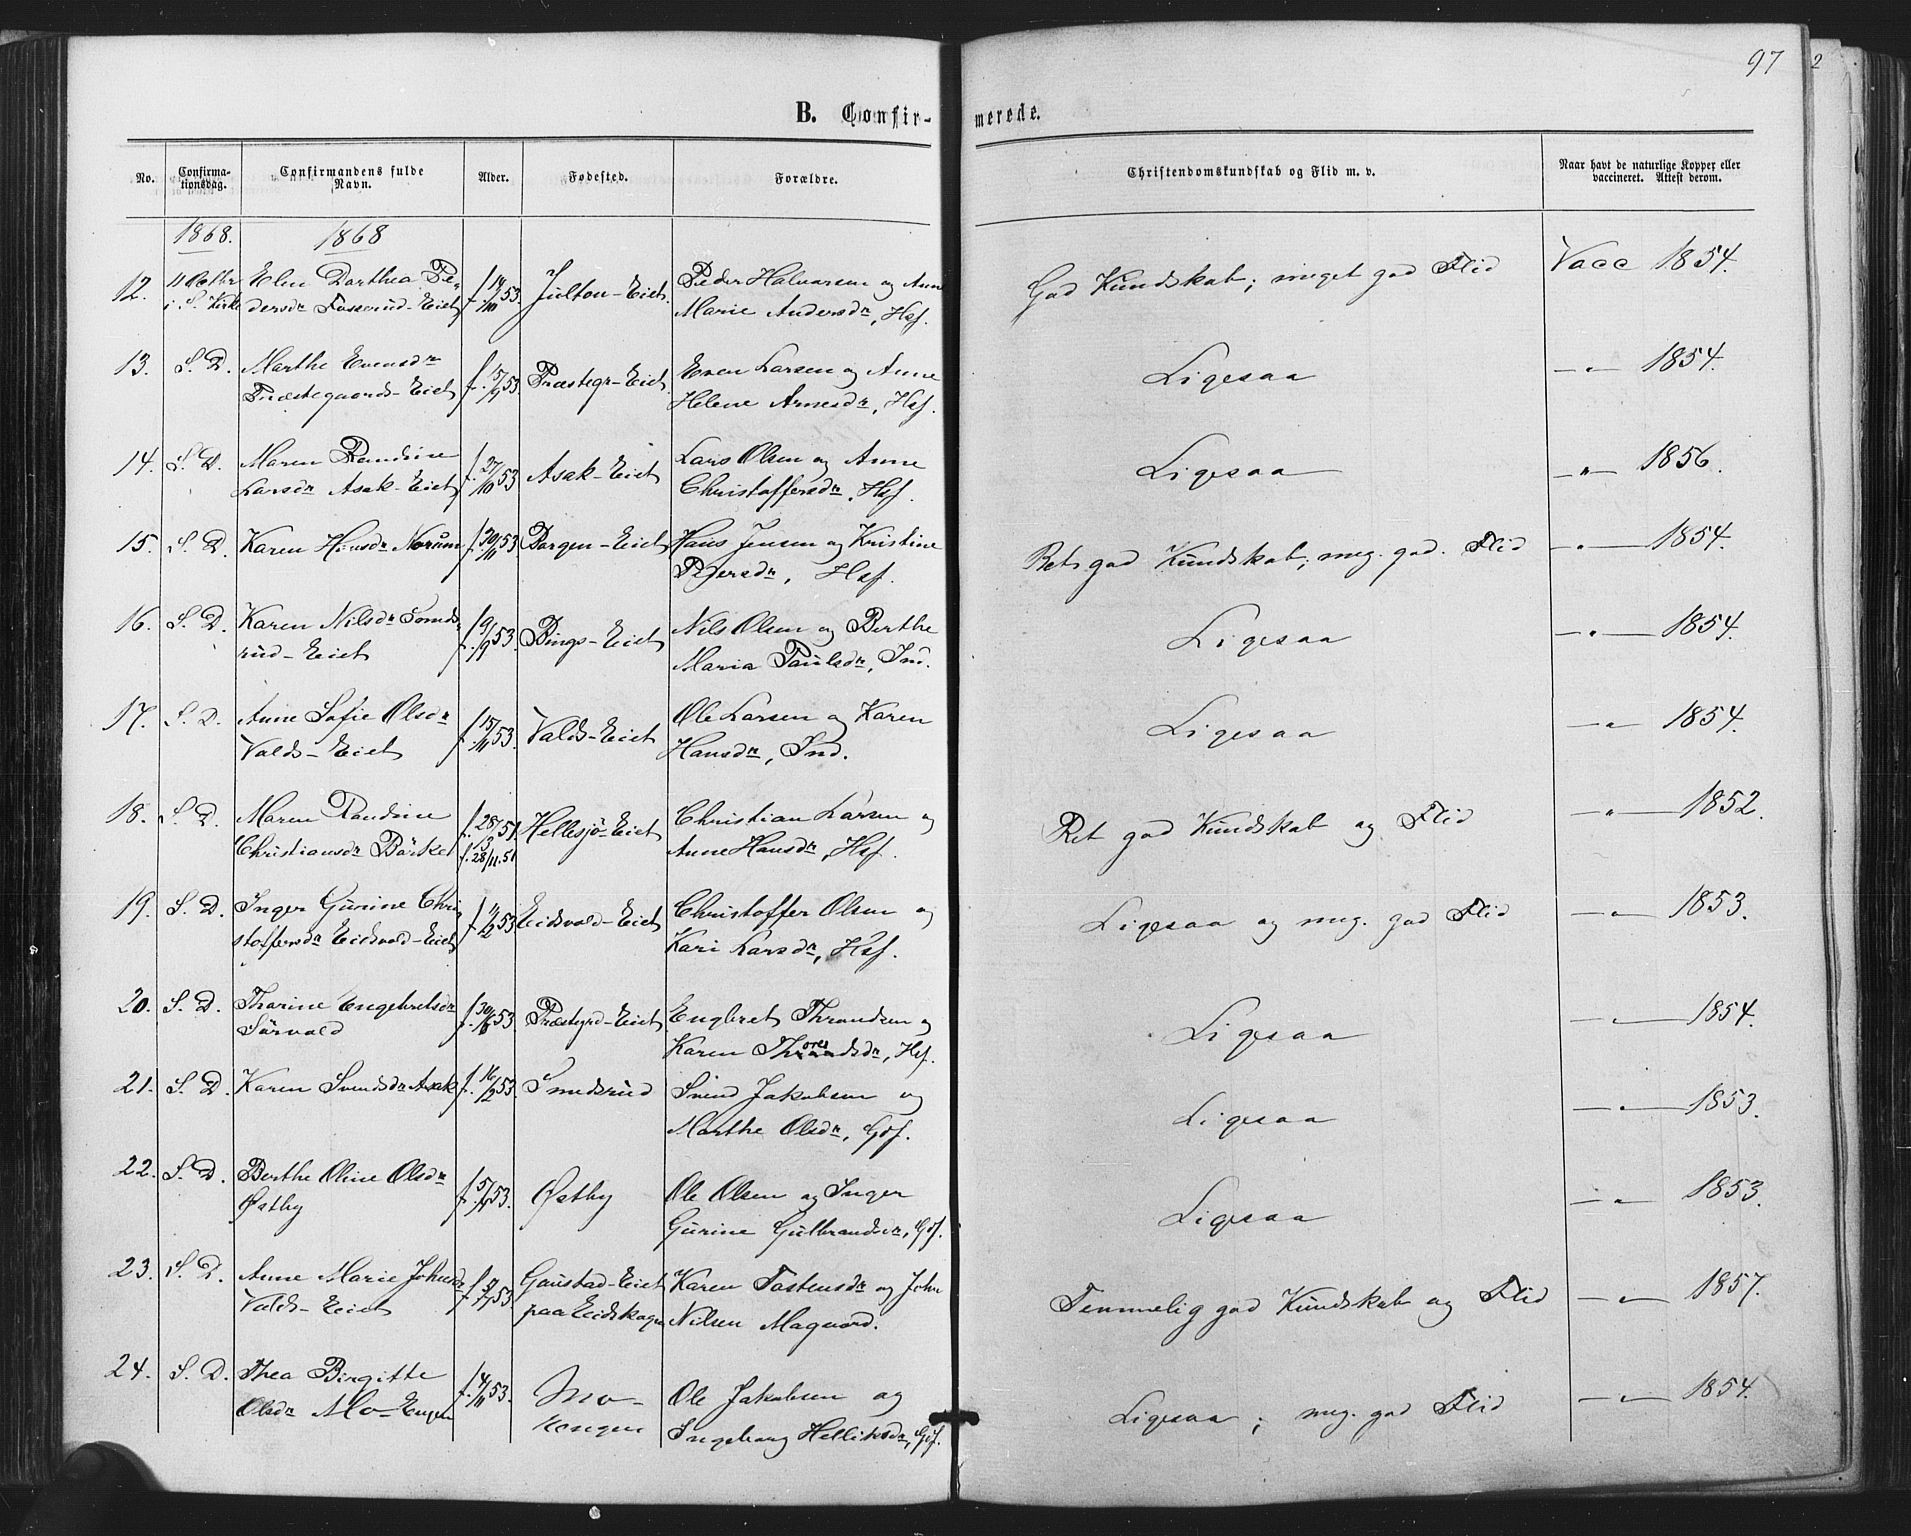 97 2
B. Confirmerede.
No. Confirmationsdag. Confirmandens fulde Navn. Alder. Fødested. Forældre. Christendomskundskab og Flid m. v. Naar havt de naturlige Kopper eller vaccineret. Attest derom.
1868. 1868
12. 11 Octbr Elen Dorthea Pe- f. 14/10 53. Julton-Eiet. Peder Halvorsen og Anne God Kundskab; meget god Flid Vacc 1854.
i S. Kirke dersdr Fosserud-Eiet Marie Andersdr, Hsf.
13. S. D. Marthe Evensdr f. 15/9 53. Præstegr-Eiet Even Larsen og Anne Ligesaa —"— 1854.
Præstegaards-Eiet Helene Arnesdr, Hsf.
14. S. D. Maren Randine f. 27/10 53 Asak-Eiet Lars Olsen og Anne Ligesaa —"— 1856.
Larsdr Asak-Eiet Christoffersdr, Hsf.
15. S. D. Karen Hansdr Norum f. 30/11 53 Borgen-Eiet Hans Jensen og Kristine Ret god Kundskab; meg. god. Flid —"— 1854.
Pedersdr, Hsf.
16. S. D. Karen Nilsdr Tomds- f. 9/9 53 Bings-Eiet Nils Olsen og Berthe Ligesaa —"— 1854.
rud-Eiet Maria Paulsdr, Ind.
17. S. D. Anne Sofie Olsdr f. 15/11 53. Valds-Eiet Ole Larsen og Karen Ligesaa —"— 1854.
Valds-Eiet Hansdr, Ind.
18. S. D. Maren Randine f. 28/13 51 Hellesjø-Eiet Christian Larsen og Ret god Kundskab og Flid —"— 1852.
Christiansdr Børke f. 28/11. 51 Anne Hansdr, Hsf.
19. S. D. Inger Gurine Chri f. 11/2 53 Eidsvold-Eiet Christoffer Olsen og Ligesaa og meg. god Flid —"— 1853.
stoffersdr Eidsvold-Eiet Kari Larsdr, Hsf.
20. S. D. Thorine Engebretsdr f. 30/8 53 Præstegrd-Eiet Engbret Throndsen og Ligesaa —"— 1854.
Sørvald Karen Thoresdr, Hsf.
21. S. D. Karen Svendsdr Asak f. 16/2 53. Smedsrud Svend Jakobsen og Ligesaa —"— 1853.
Marthe Olsdr, Gdf.
22. S. D. Berthe Oline Olsdr f. 5/4 53. Østby Ole Olsen og Inger Ligesaa —"— 1853.
Østby Gurine Gulbrandsdr, Gdf.
23. S. D. Anne Marie Johnsdr f. 9/7 53 Gaustad-Eiet Karen Tostensdr og John Temmelig god Kundskab og Flid —"— 1857.
Valds-Eiet paa Eidskogen Nilsen Magnord.
24. S. D. Thea Birgitte f. 4/11 53. Mo- Ole Jakobsen og Ligesaa; meg. god Flid —"— 1854.
Olsdr Mo-Engen Kengen Ingeborg Helliksdr, Gdf.